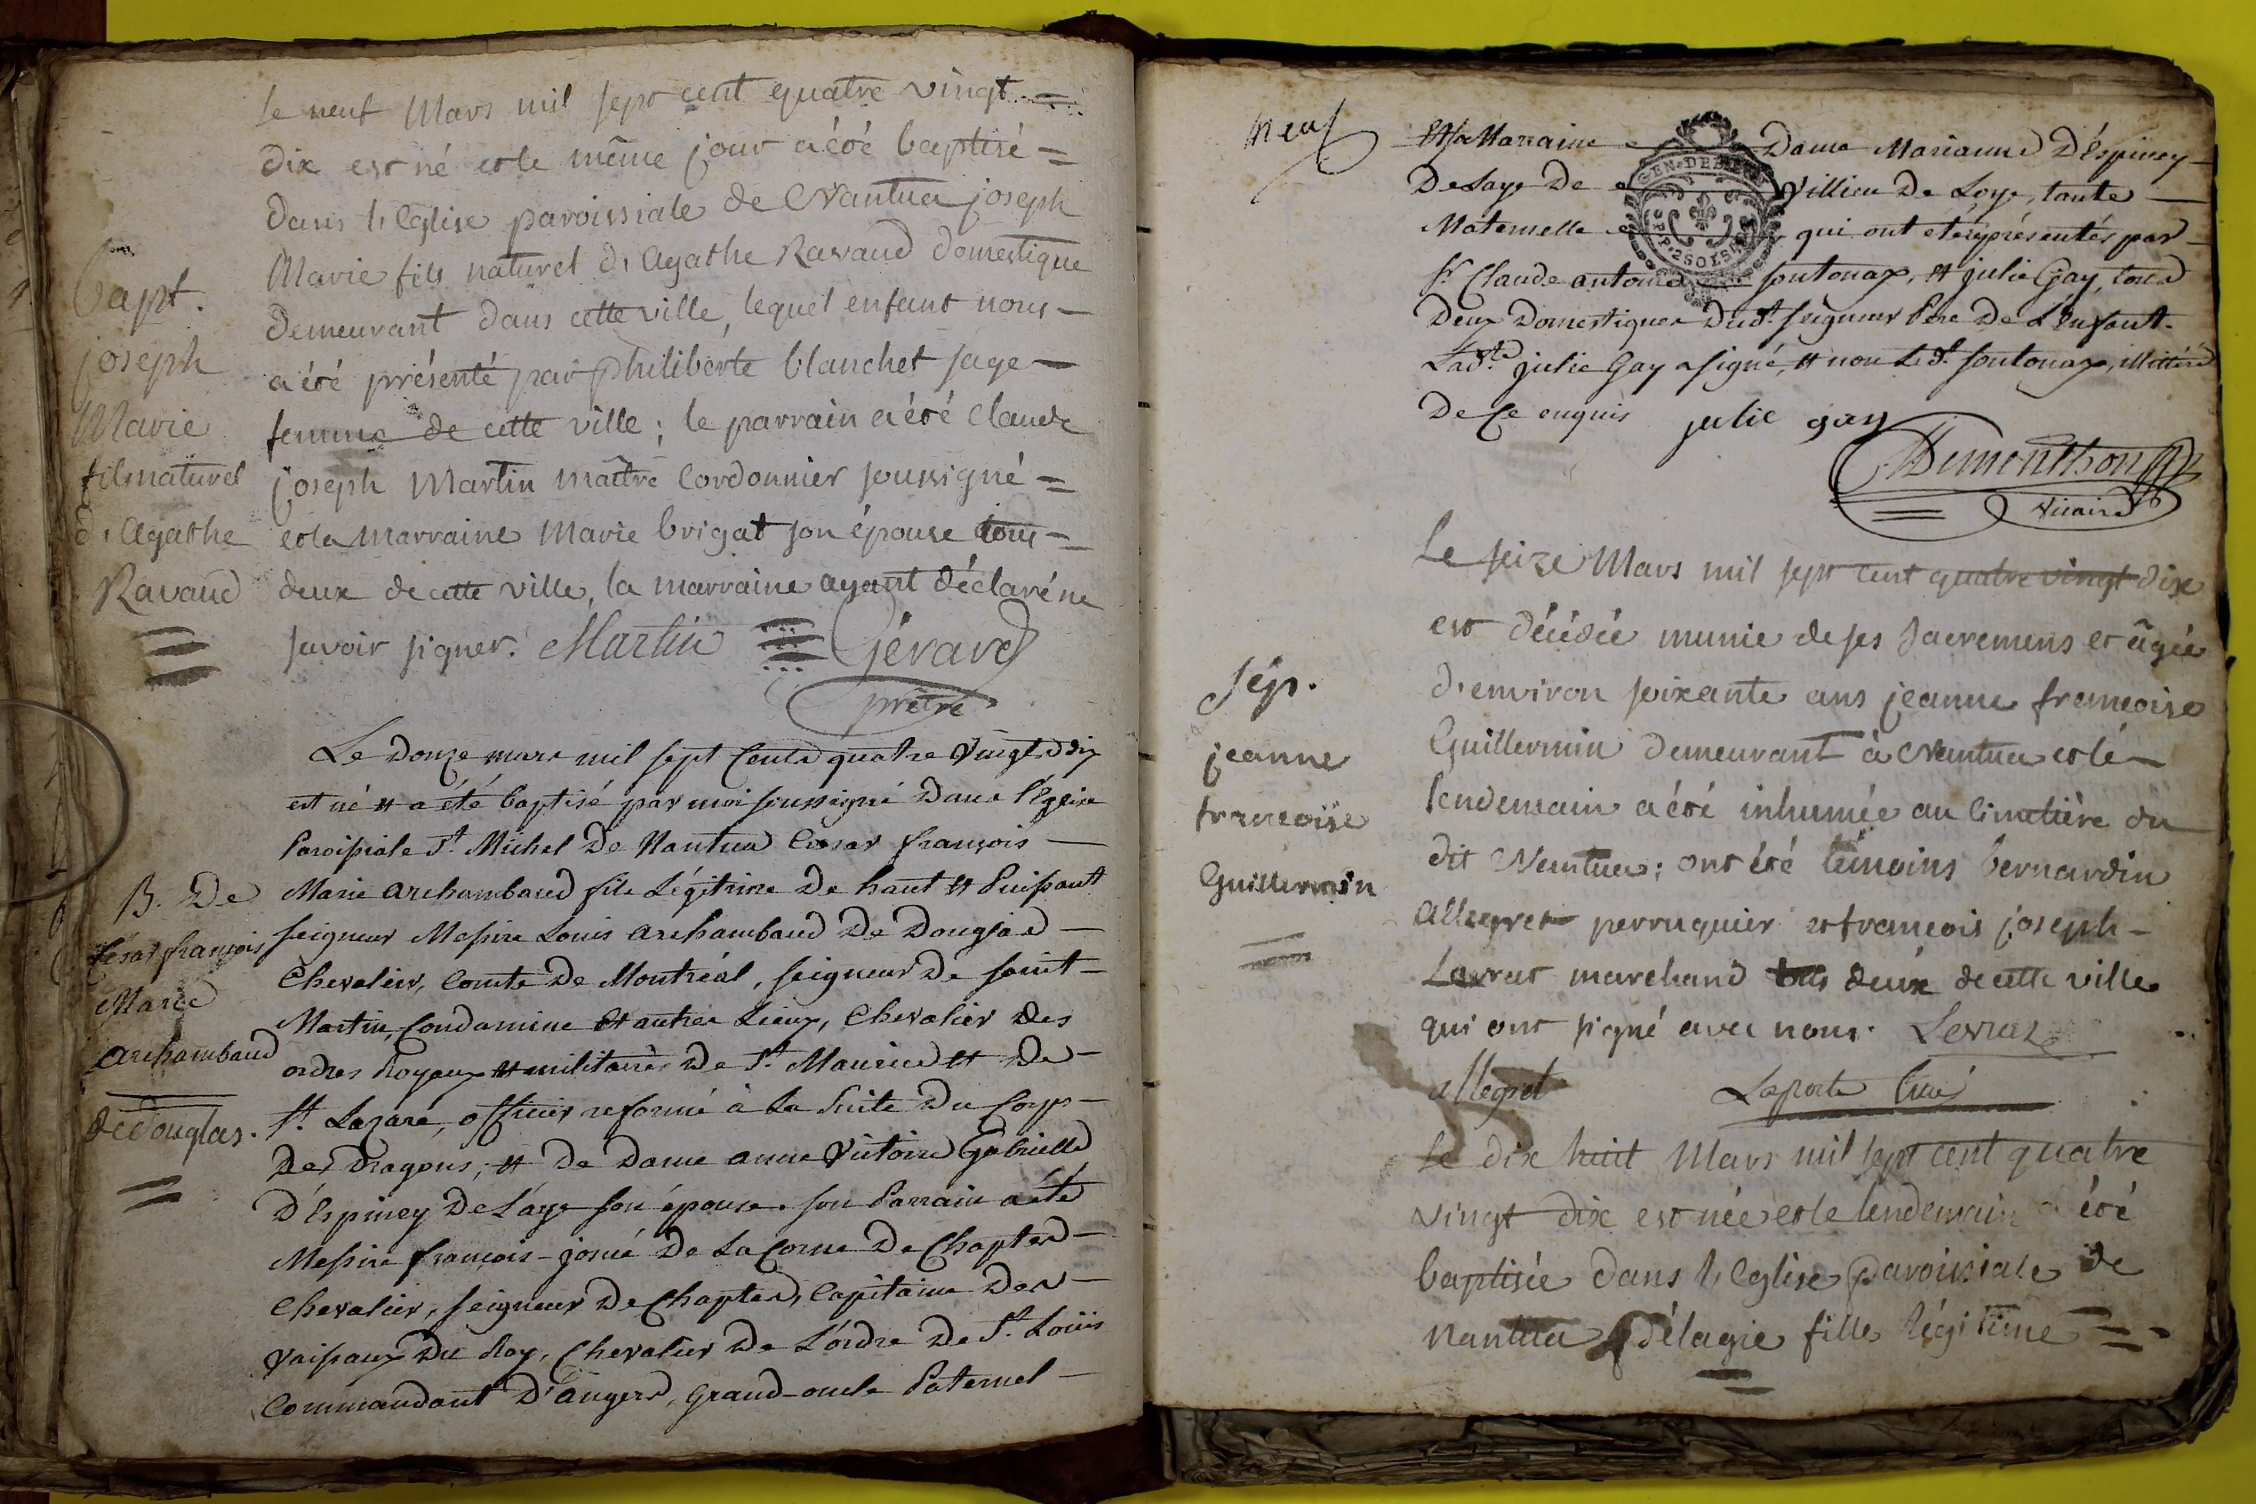 le neuf Mars mil sept cent quatre vingt =
dix est né et le même jour a été baptisé =
dans l'Eglise paroissiale de Nantua joseph
Marie fils naturel d'Agathe Ravaud domestique
demeurant dans cette ville, lequel enfant nous –
a été présenté par philiberte blanchet sage –
femme de cette ville ; le parrain a été claude
joseph Martin maître Cordonnier soussigné =
et la marraine Marie brigat son épouse tous =
deux de cette ville, la marraine ayant déclaré ne
savoir signer. Martin Gérard
prêtre
bapt.
joseph
Marie
fils naturel
d'Agathe
Ravaud
Le Douze mars mil sept Cents quatre Vingts dix
est né et a été baptisé par moi soussigné Dans l'Eglise
Paroissiale St. Michel De Nantua Cesar françois –
Marie archambaud fils Légitime De haut et Puissant
seigneur Messire Louis archambaud De Douglas –
Chevalier, Comte De Montréal, seigneur De saint –
Martin, Condamine Et autres Lieux, Chevalier Des
ordres Royaux et militaires De St. Maurice et De –
St. Lazare, officier reformé à La Suite Du Corps –
Des Dragons ; et De Dame anne Victoire Gabrielle
D'Espiney De Laye son épouse. son Parrain a été
Messire françois-josué De La Corne De Chaptes –
Chevalier, seigneur De Chaptes, Capitaine Des –
Vaissaux Du Roy, Chevalier De L'ordre De St. Loüis
Commandant D'angers, Grand-oncle Paternel –
B. De
César françois
Marie
archambaud
de Douglas.
neuf
Et sa Marraine Dame Marianne D'Espiney –
De Laye De Villieu De Loye, tante –
Maternelle qui ont été représentés par –
Sr. Claude antoine sontonax, et julie Gay, tous
Deux Domestiques Dudt. seigneur Pere De L'Enfant.
Ladte. julie Gay a signé, et non Ledt. sontonax, illittéré
De Ce enquis julie gay
GEN. DE
2 SOLS
Demonthoux
Vicaire
Le seize Mars mil sept cent quatre vingt dix
est décédée munie de ses sacremens et âgée
d'environ soixante ans jeanne francoise
Guillermin demeurant à Nantua et le –
lendemain a été inhumée au Cimetière du
dit Nantua ; ont été témoins bernardin
Allegret perruquier et francois joseph –
Lavrat marchand tous deux de cette ville
qui ont signé avec nous. Levrat
allegret Laporte Curé
Sép.
jeanne
francoise
Guillermin
Le dix huit Mars mil sept cent quatre
vingt dix est née et le lendemain a été
baptisée dans l'Eglise paroissiale de
Nantua Pélagie fille légitime =